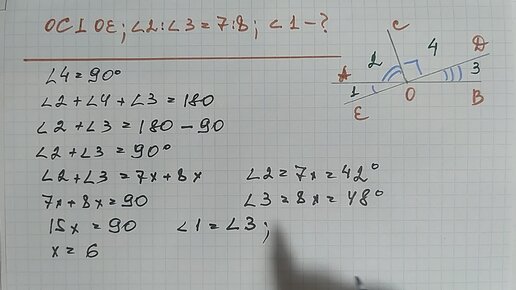 OC⊥OE; ∠2:∠3=7:8; ∠1-?
∠4=90°
∠2+∠4+∠3=180
∠2+∠3=180-90
∠2+∠3=90°
∠2+∠3=7x+8x
7x+8x=90
15x=90
x=6
∠2=7x=42°
∠3=8x=48°
∠1=∠3;
C
2
4
D
A
3
1
E
O
B